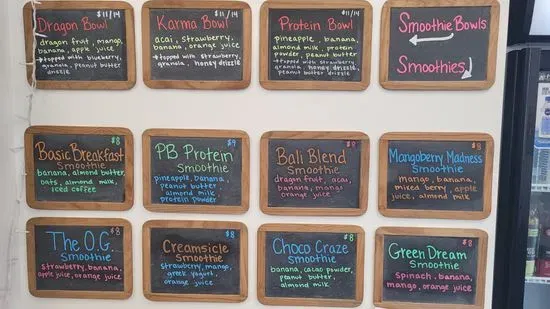 Dragon Bowl $11/14
dragon fruit, mango,
banana, apple juice
→topped with blueberry,
granola, peanut butter
drizzle
Karma Bowl $11/14
acai, strawberry,
banana, orange juice
→topped with strawberry
granola, honey drizzle
Protein Bowl $11/14
pineapple, banana,
almond milk, protein
powder, peanut butter
→topped with strawberry,
granola, honey drizzle,
peanut butter drizzle
Smoothie Bowls
Smoothies
Basic Breakfast $8
Smoothie
banana, almond butter,
oats, almond milk,
iced coffee
PB Protein $9
Smoothie
pineapple, banana,
peanut butter
almond milk
protein powder
Bali Blend $8
Smoothie
dragon fruit, acai,
banana, mango
orange juice
Mangoberry Madness $8
Smoothie
mango, banana,
mixed berry, apple
juice, almond milk
The O.G. $8
Smoothie
strawberry, banana,
apple juice, orange juice
Creamsicle $8
Smoothie
strawberry, mango,
greek yogurt,
orange juice
Choco Craze $8
Smoothie
banana, cacao powder,
peanut butter,
almond milk
Green Dream $8
Smoothie
spinach, banana,
mango, orange juice